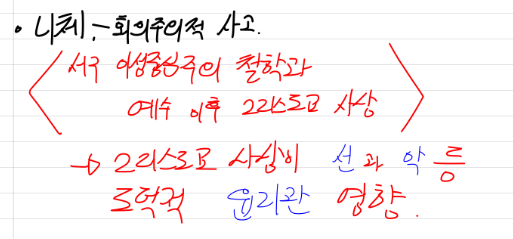 • 니체 :- 회의주의적 사고.
서구 이성중심주의 철학과
예수 이후 그리스도교 사상
→ 그리스도교 사상이 선과 악 등
도덕적 윤리관 영향.